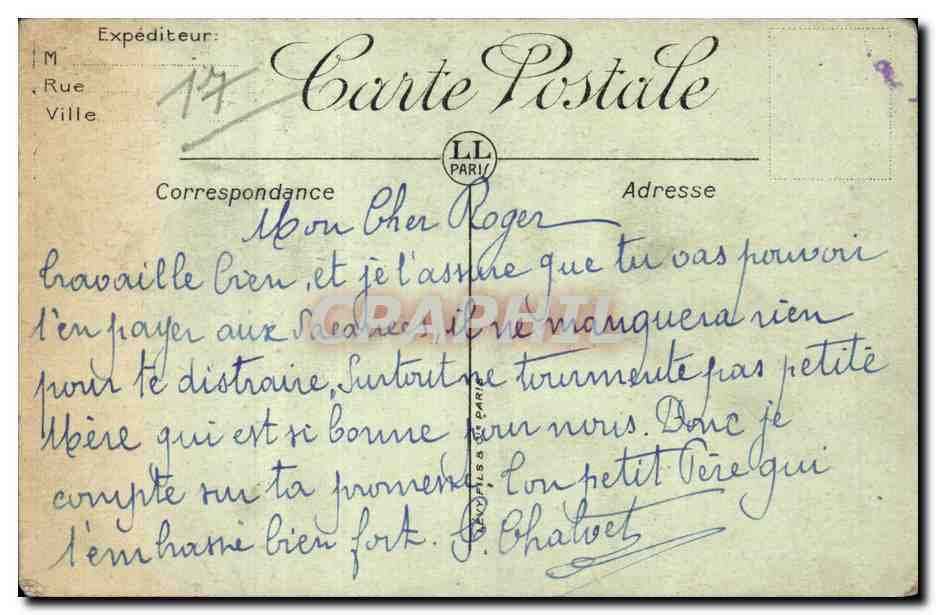 Expéditeur:
M
Rue
Ville
17
Carte Postale
LL
PARIS
Correspondance
Adresse
Mon Cher Roger
travaille bien, et je t'assure que tu vas pouvoir
t'en payer aux vacances, il ne manquera rien
pour te distraire. Surtout ne tourmente pas petite
Mère qui est si bonne pour nous. Donc je
compte sur ta promesse. Ton petit Père qui
t'embrasse bien fort. Chalvet
LEVY FILS & Cie PARIS
CPAPHIL